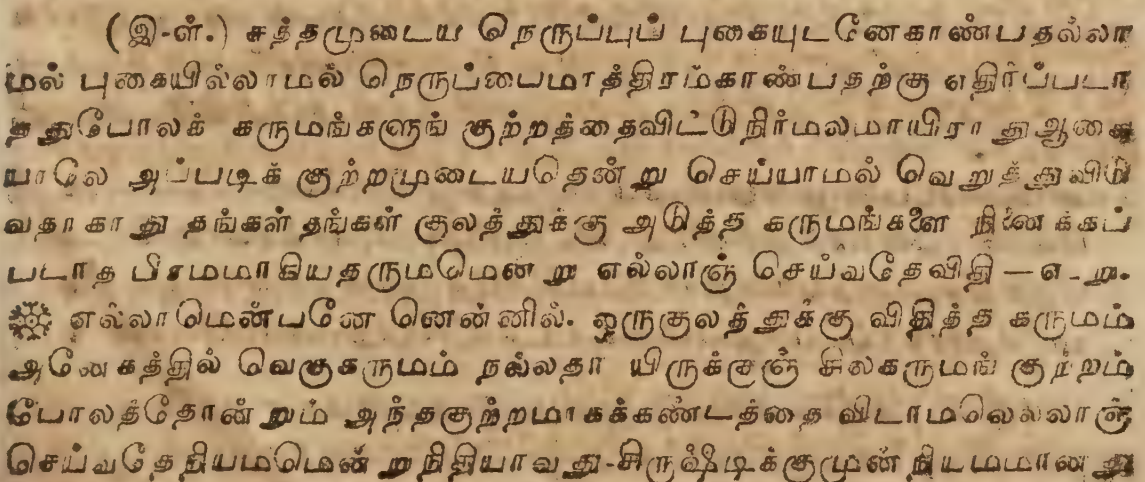 (இ-ள்.) சுத்தமுடைய நெருப்புப் புகையுடனேகாண்பதல்லா
மல் புகையில்லாமல் நெருப்பைமாத்திரம்காண்பதற்கு எதிர்ப்படா
ததுபோலக் கருமங்களுங் குற்றத்தைவிட்டு நிர்மலமாயிராது ஆகை
யாலே அப்படிக் குற்றமுடையதென்று செய்யாமல் வெறுத்துவிடு
வதாகாது தங்கள் தங்கள் குலத்துக்கு அடுத்த கருமங்களை நினைக்கப்
படாத பிரமமாகியதருமமென்று எல்லாஞ் செய்வதேவிதி — எ-று.
எல்லாமென்பனே னென்னில். ஒருகுலத்துக்கு விதித்த கருமம்
அனேகத்தில் வெகுகருமம் நல்லதா யிருக்குஞ் சிலகருமங் குற்றம்
போலத்தோன்றும் அந்தகுற்றமாகக்கண்டத்தை விடாமலெல்லாஞ்
செய்வதேநியமமென் றநிதியாவது-சிருஷ்டிக்குமுன் நியமமானது